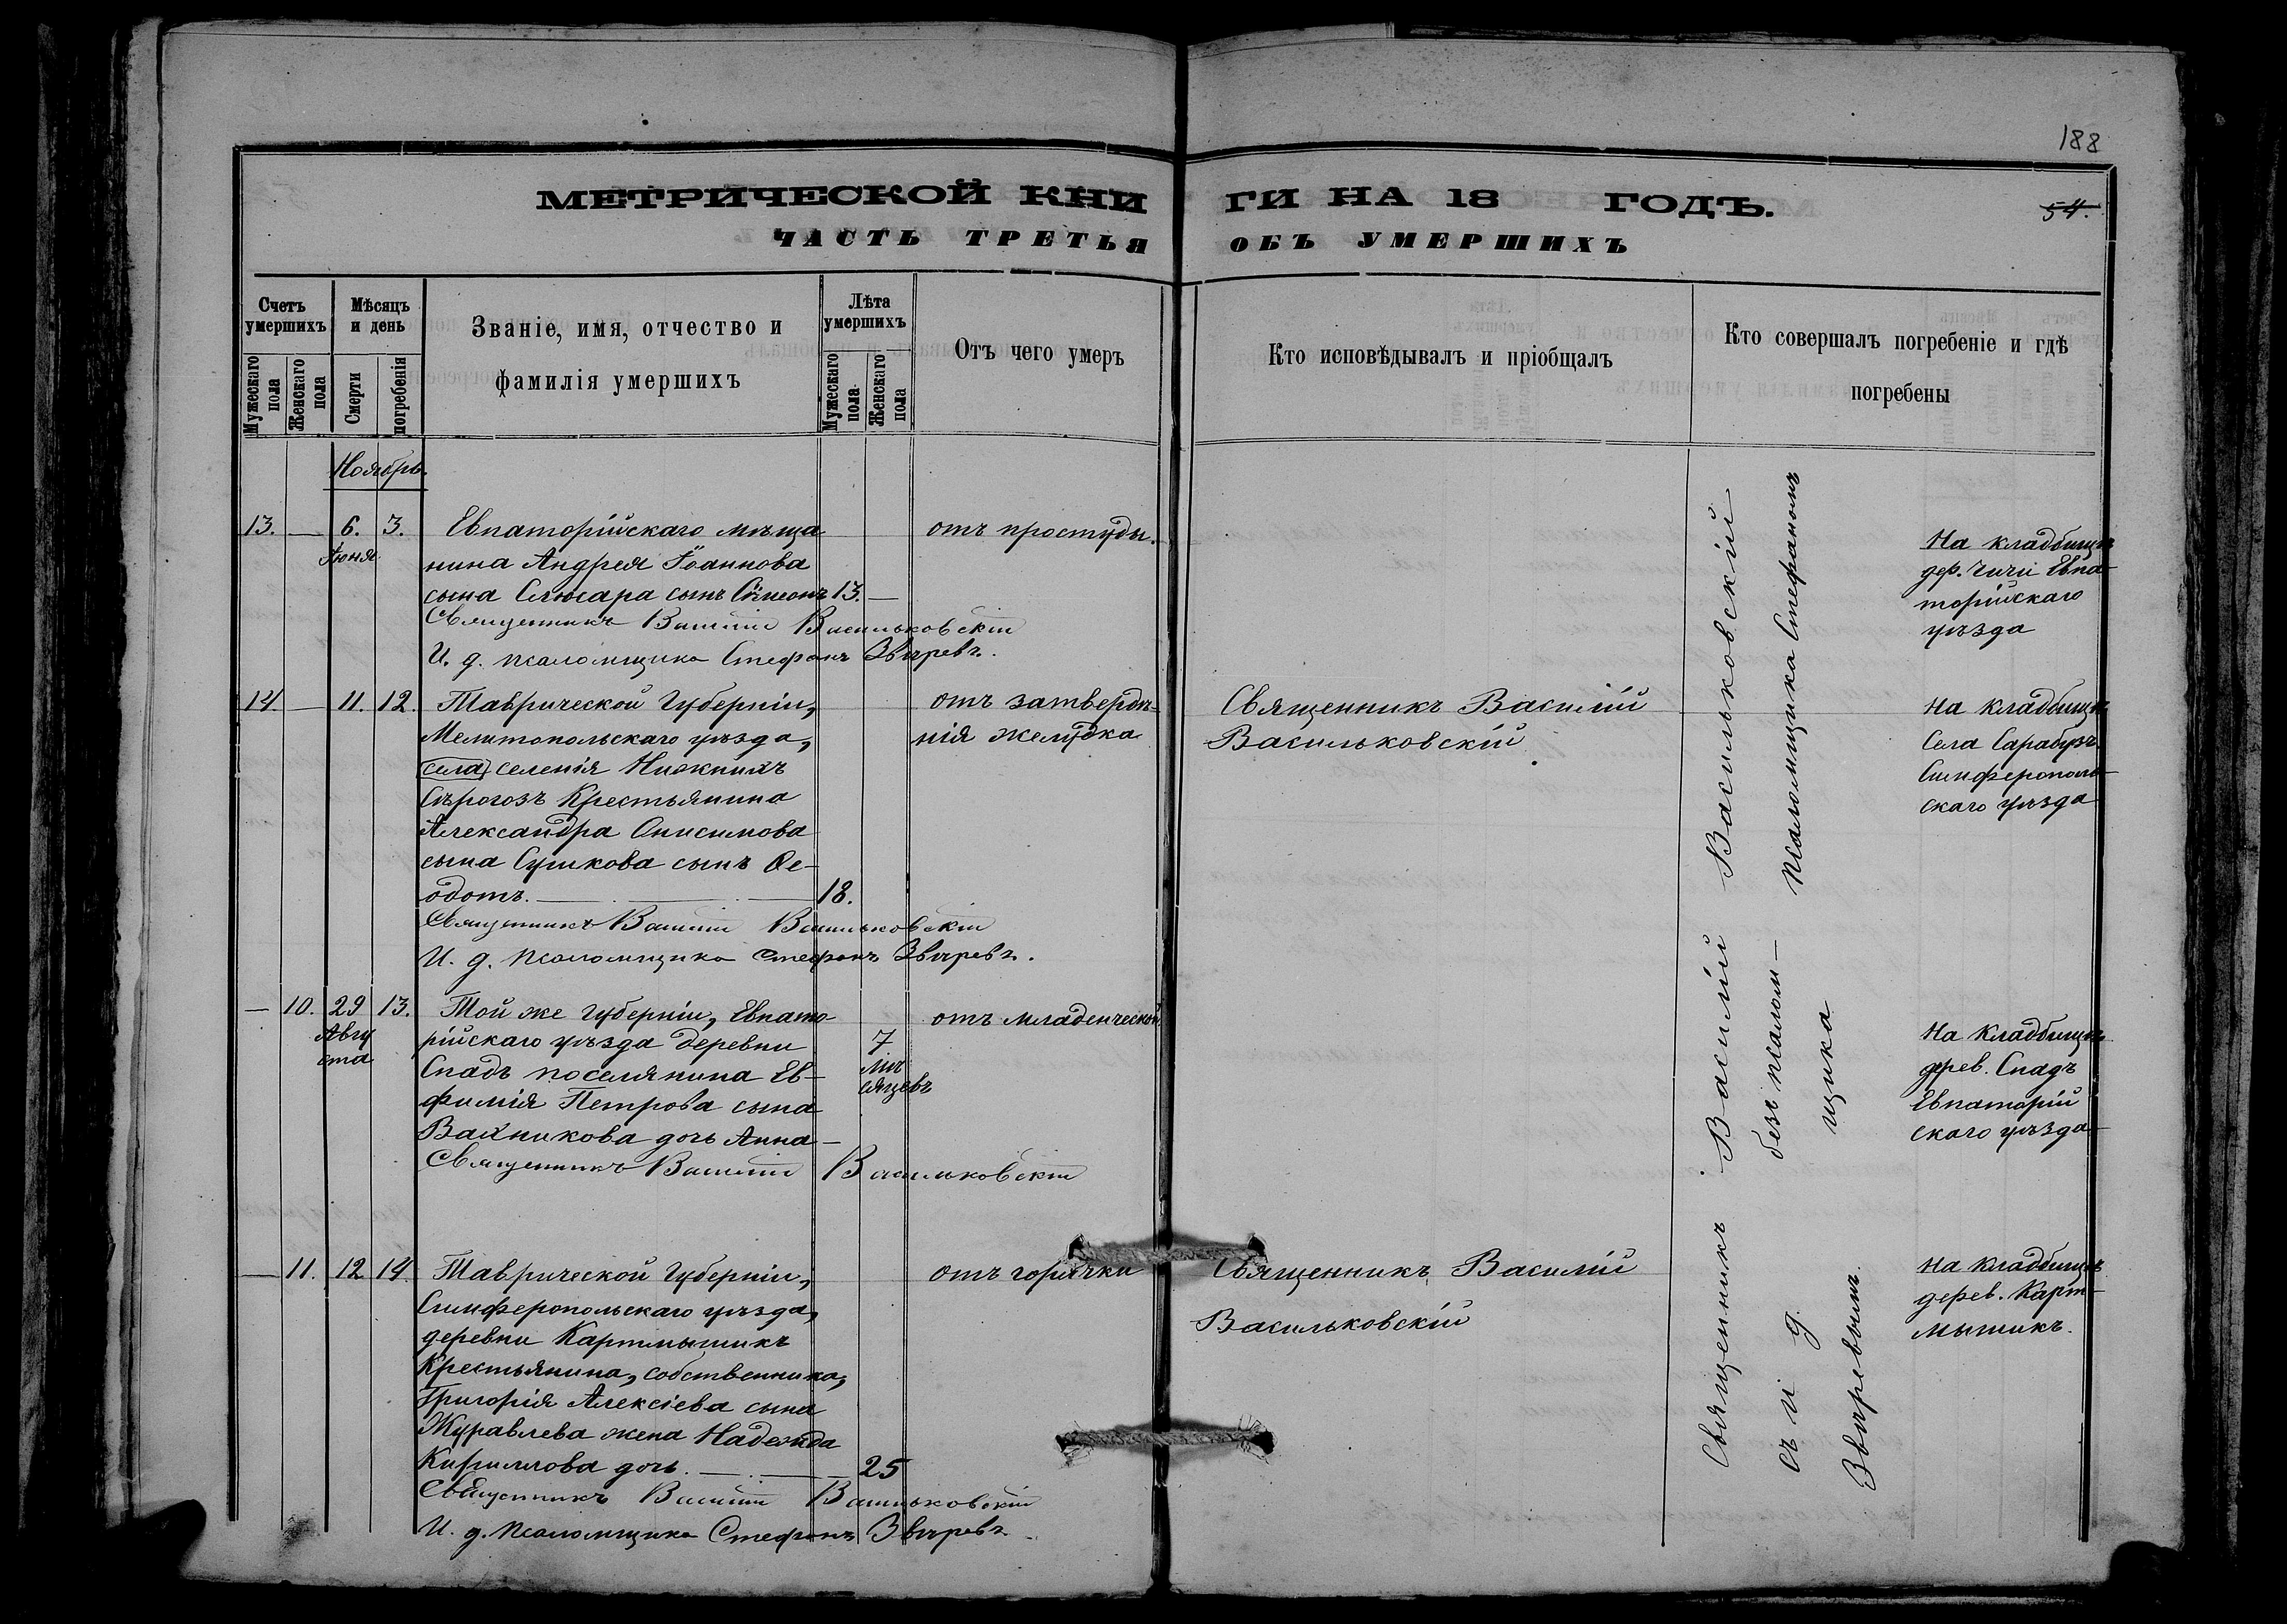 188
МЕТРИЧЕСКОЙ КНИГИ НА 18 ГОДЪ.
54.
ЧАСТЬ ТРЕТЬЯ ОБЪ УМЕРШИХЪ
Счетъ умершихъ
Мужескаго пола
Женскаго пола
Мѣсяцъ и день
Смерти
погребенія
Званіе, имя, отчество и
фамилія умершихъ
Лѣта умершихъ
Мужескаго пола
Женскаго пола
Отъ чего умеръ
Кто исповѣдывалъ и пріобщалъ
Кто совершалъ погребеніе и гдѣ
погребены
Ноябрь
13. — 6. 3. Евпаторійскаго мѣща
Іюня
нина Андрея Іоаннова
сына Слюсара сынъ Сѵмеонъ 13. —
отъ простуды.
На кладбищѣ
дер. Чичи Евпа-
торійскаго
уѣзда
Священникъ Василій Васильковскій
И. д. псаломщика Стефанъ Звѣревъ.
14. — 11. 12. Таврической Губерніи,
Мелитопольскаго уѣзда,
(села) селенія Нижнихъ
Сѣрогозъ Крестьянина
Александра Онисимова
сына Сушкова сынъ Ѳе-
одотъ. — 18.
отъ затвердѣ-
нія желудка
Священникъ Василій
Васильковскій
На кладбищѣ
Села Сарабузъ
Симферополь-
скаго уѣзда
Священникъ Василій Васильковскій
И. д. псаломщика Стефанъ Звѣревъ.
— 10. 29 13. Той же Губерніи, Евпато-
Авгу
ста
рійскаго уѣзда деревни
Спадъ поселянина Ев-
фимія Петрова сына
Вайникова дочь Анна —
7
мѣ
сяцевъ
отъ младенческой
На кладбищѣ
дерев. Спадъ
Евпаторій
скаго уѣзда
Священникъ Василій Васильковскій
— 11. 12 14. Таврической Губерніи,
Симферопольскаго уѣзда,
деревни Картмышикъ
Крестьянина, собственника,
Григорія Алексіева сына
Журавлева жена Надежда
Кириллова дочь. — 25
отъ горячки
Священникъ Василій
Васильковскій
На кладбищѣ
дерев. Карт-
мышикъ.
Священникъ Василій Васильковскій
И. д. псаломщика Стефанъ Звѣревъ.
Священникъ Василій Васильковскій
съ и д. безъ псалом-
щика
псаломщика Стефаномъ
Звѣревымъ.